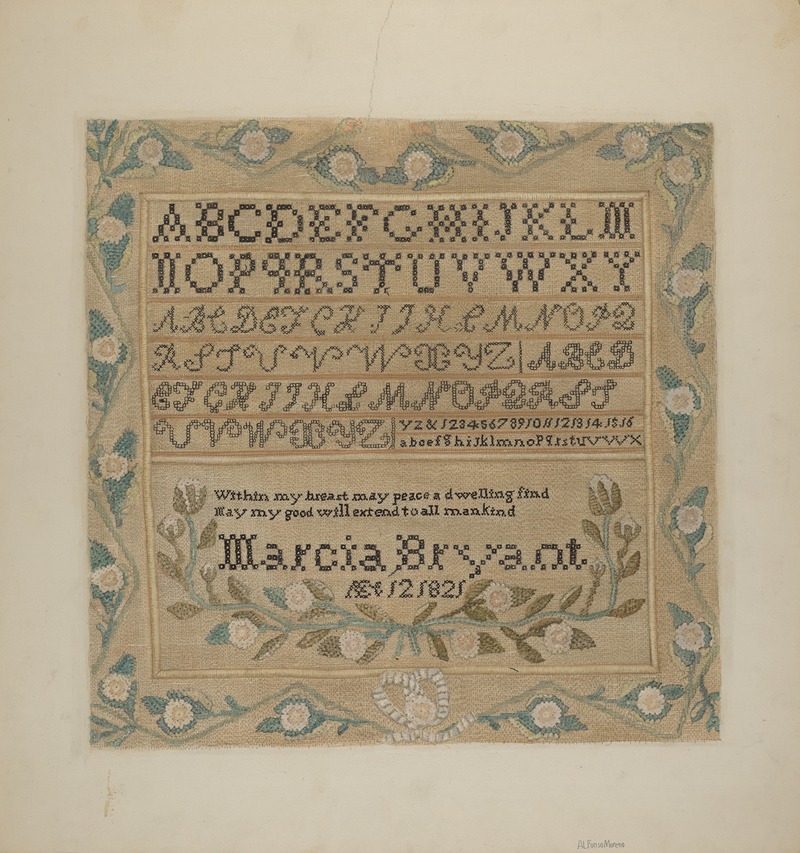 ABCDEFGHIJKLM
NOPQRSTUVWXY
ABCDEFGHIJKLMNOPQ
RSTUVWXYZ ABCD
EFGHIJKLMNOPQRSS
UVWXYZ yz&1234567891011121314151516
abcefghijklmnopqrstuvvvx
Within my breast may peace a dwelling find
May my good will extend to all mankind
Marcia Bryant
Æt 12 1821
ALFonsoMoreno